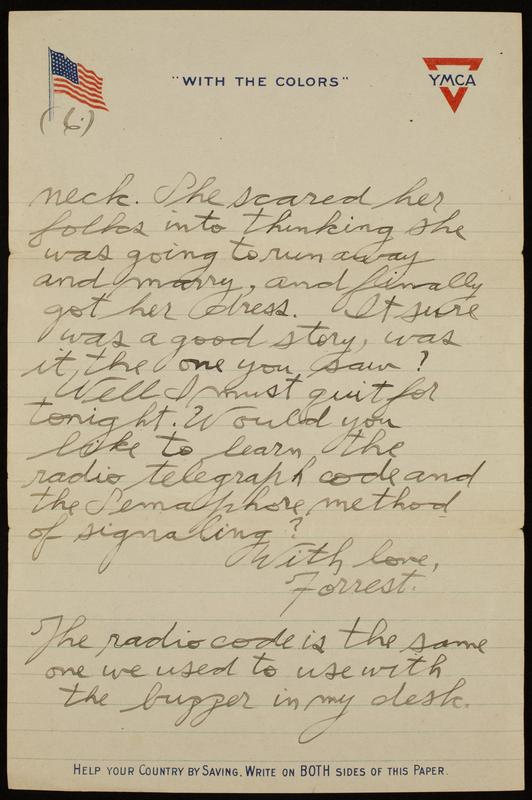 "WITH THE COLORS"
YMCA
(6)
neck. She scared her
folks into thinking she
was going to run away
and marry, and finnally
got her dress. It sure
was a good story, was
it, the one you saw?
Well I must quit for
tonight. Would you
like to learn the
radio telegraph code and
the Semaphore method
of signaling?
With love,
Forrest.
The radio code is the same
one we used to use with
the buzzer in my desk.
HELP YOUR COUNTRY BY SAVING. WRITE ON BOTH SIDES OF THIS PAPER.